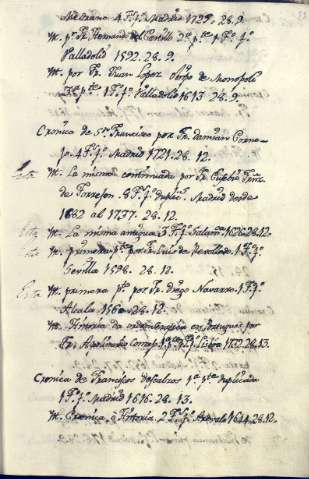 Medrano 4 Ff. Madrid 1729. 28. 9.
Yt. pr. Fr. Hernando del Castillo 3ª pte. 1 Ff.
Valladolid 1592. 28. 9.
Yt. por Fr. Juan Lopez Obispo de Monopoli
3ª pte. 1 Ff. Valladolid 1613. 28. 9.
Cronica de Sn. Francisco por Fr. Damian Corne-
jo. 4 Ff. Madrid 1721. 28. 12.
Yt. La misma continuada por Fr. Eusebio
de Torreson. 8 Ff. duplic. Madrid desde
1682 al 1737. 28. 12.
Yt. La misma antigua 3 Ff. Salam. 28. 12.
Yt. primera pte. por Fr. Luis de Revolledo. 1 Ff.
Sevilla 1598. 28. 12.
Yt. primera pte. por Fr. Diego Navarro 1 Ff.
Alcala 28. 12.
Yt. Historia da en Portugues por
Fr. 1 Ff. Lisboa 28. 13.
Cronica de Franciscos descalzos 1ª pte. duplicada
1 Ff. Madrid 1616. 28. 13.
Yt. Cronica, o Historia. 2 Ff. 1644. 28. 12.